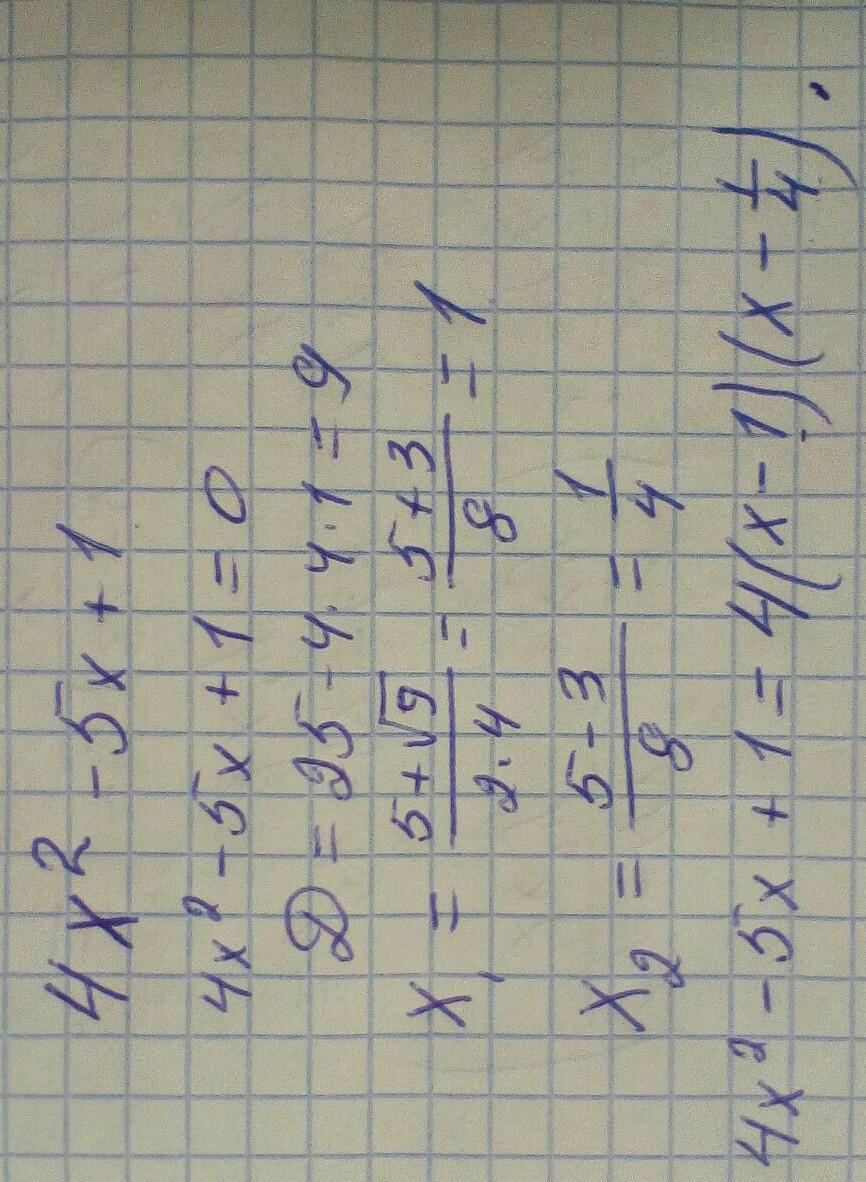 4x² - 5x + 1
4x² - 5x + 1 = 0
D = 25 - 4·4·1 = 9
x₁ = (5+√9)/(2·4) = (5+3)/8 = 1
x₂ = (5-3)/8 = 1/4
4x² - 5x + 1 = 4(x-1)(x - 1/4).